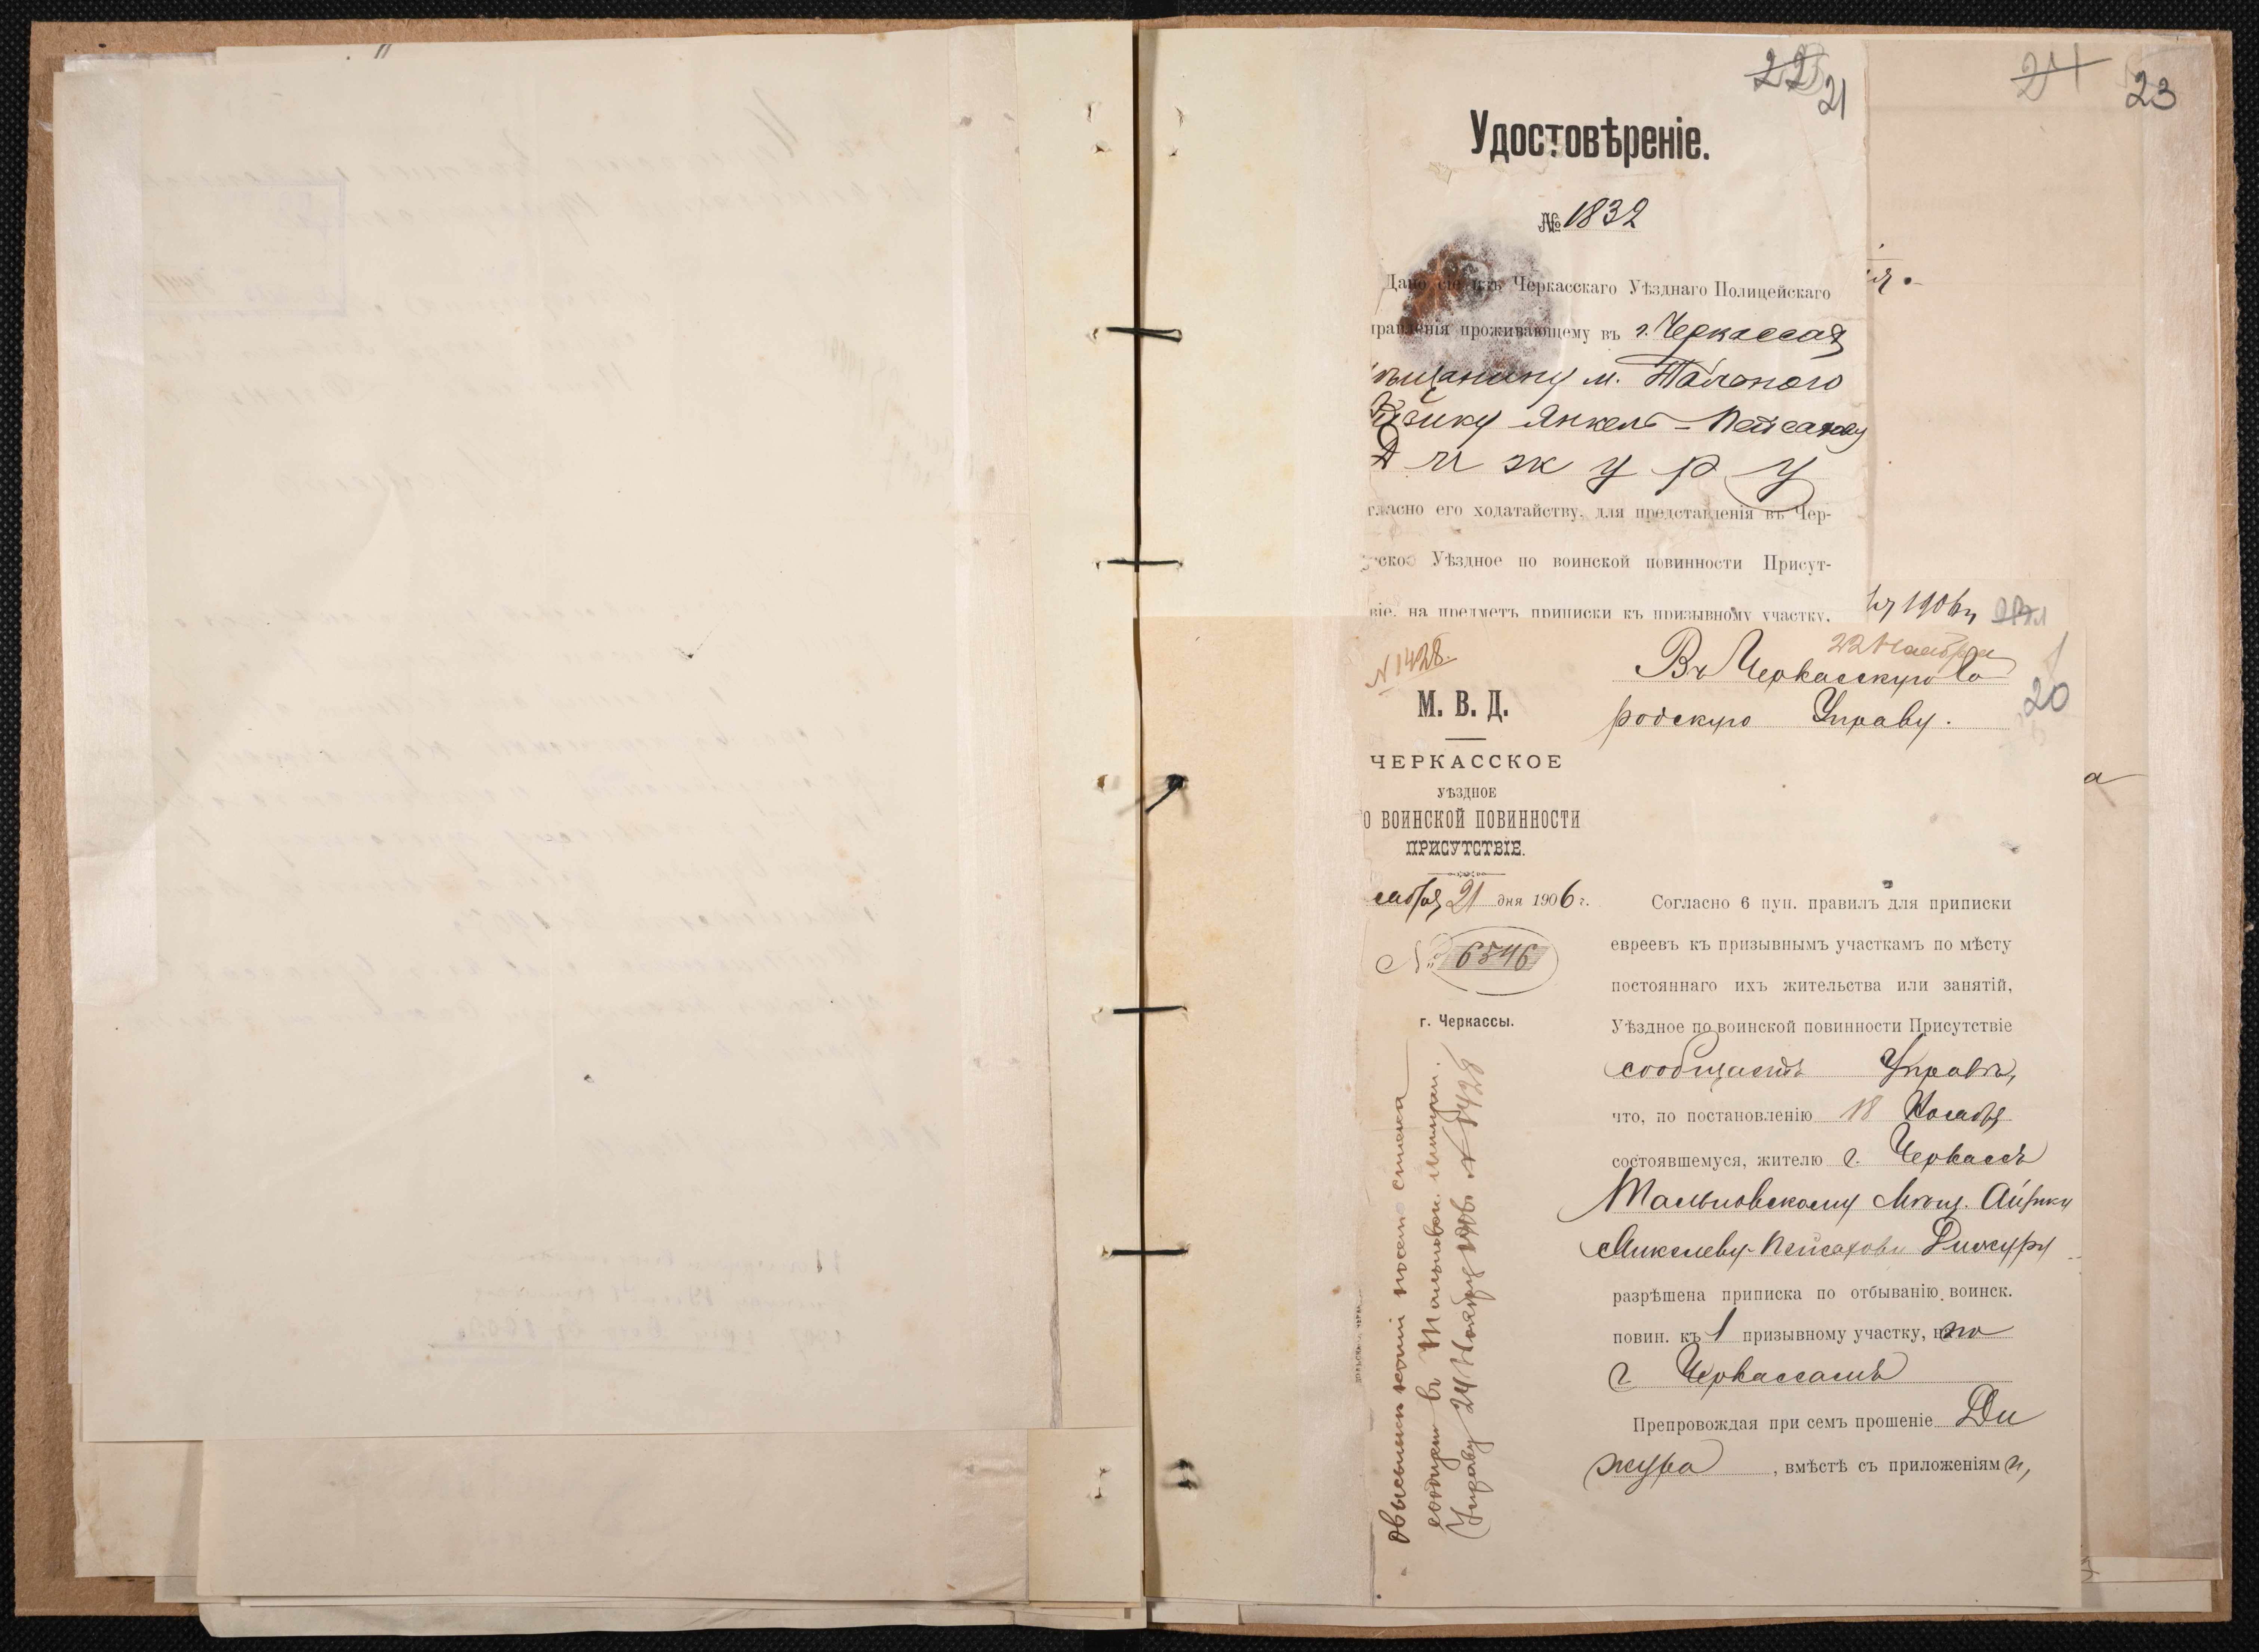 22 21
24 23
Удостовѣреніе.
№ 1832
Дано сіе изъ Черкасскаго Уѣзднаго Полицейскаго
правленія проживающему въ г. Черкассахъ
мѣщанину м. Тального
Айзику Янкель-Пейсахову
Дижуру
гласно его ходатайству, для представленія въ Чер-
ское Уѣздное по воинской повинности Присут-
віе, на предметъ приписки къ призывному участку,
1906 г.
N 1428.
22 Ноября
Въ Черкасскую Го
родскую Управу.
20
М. В. Д.
ЧЕРКАССКОЕ
УѢЗДНОЕ
О ВОИНСКОЙ ПОВИННОСТИ
ПРИСУТСТВІЕ.
оября 21 дня 1906 г.
№ 6546
г. Черкассы.
Согласно 6 пун. правилъ для приписки
евреевъ къ призывнымъ участкамъ по мѣсту
постояннаго ихъ жительства или занятій,
Уѣздное по воинской повинности Присутствіе
сообщаетъ Управѣ,
что, по постановленію 18 Ноября
состоявшемуся, жителю г. Черкассъ
Тальновскому Мѣщ. Айзику
Янкелеву-Пейсахову Дижуру
разрѣшена приписка по отбыванію воинск.
повин. къ 1 призывному участку, по
г. Черкассамъ
Препровождая при семъ прошеніе Ди
жура, вмѣстѣ съ приложеніями,
сообщен въ Тальновск. мѣщан.
Управу 24 Ноября 1906 N 1428